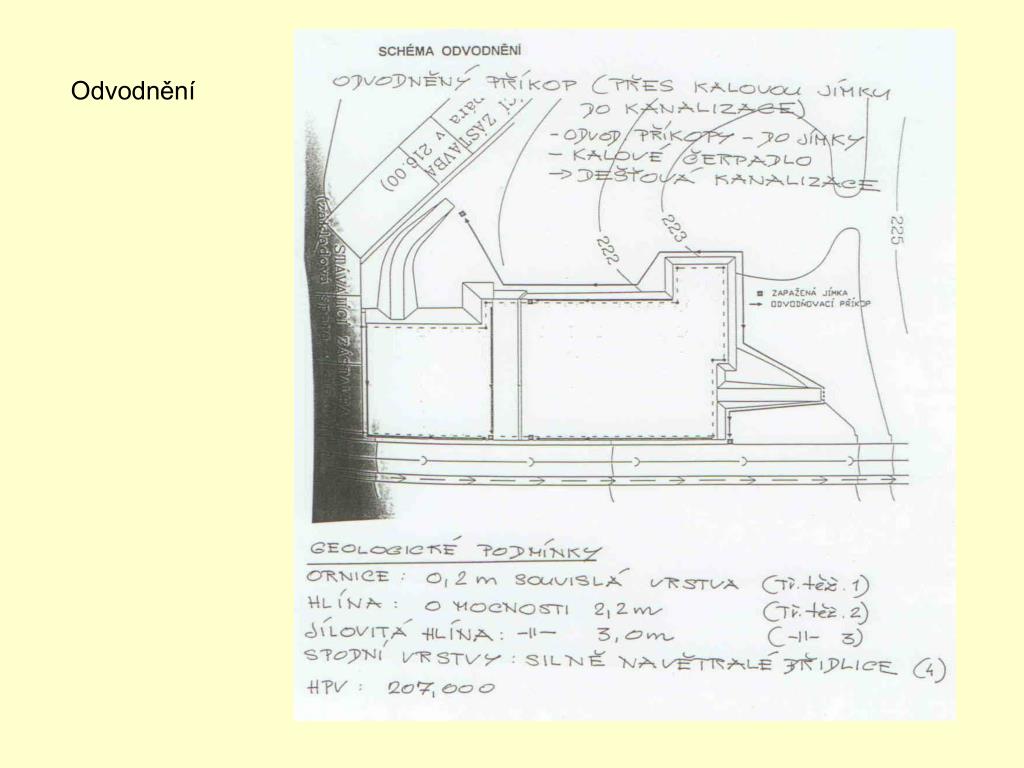 Odvodnění
SCHÉMA ODVODNĚNÍ
ODVODNĚNÝ PŘÍKOP (PŘES KALOVOU JÍMKU
DO KANALIZACE)
- ODVOD. PŘÍKOPY - DO JÍMKY
- KALOVÉ ČERPADLO
→ DEŠŤOVÁ KANALIZACE
CÍ ZÁSTAVBA
pára v 216.00)
222
223
225
ZAPAŽENÁ JÍMKA
ODVODŇOVACÍ PŘÍKOP
STÁVAJÍCÍ
GEOLOGICKÉ PODMÍNKY
ORNICE: 0,2 m SOUVISLÁ VRSTVA (Tř. těž. 1)
HLÍNA: O MOCNOSTI 2,2 m (Tř. těž. 2)
JÍLOVITÁ HLÍNA: -II- 3,0m (-II- 3)
SPODNÍ VRSTVY: SILNĚ NAVĚTRALÉ BŘIDLICE (4)
HPV: 207,000